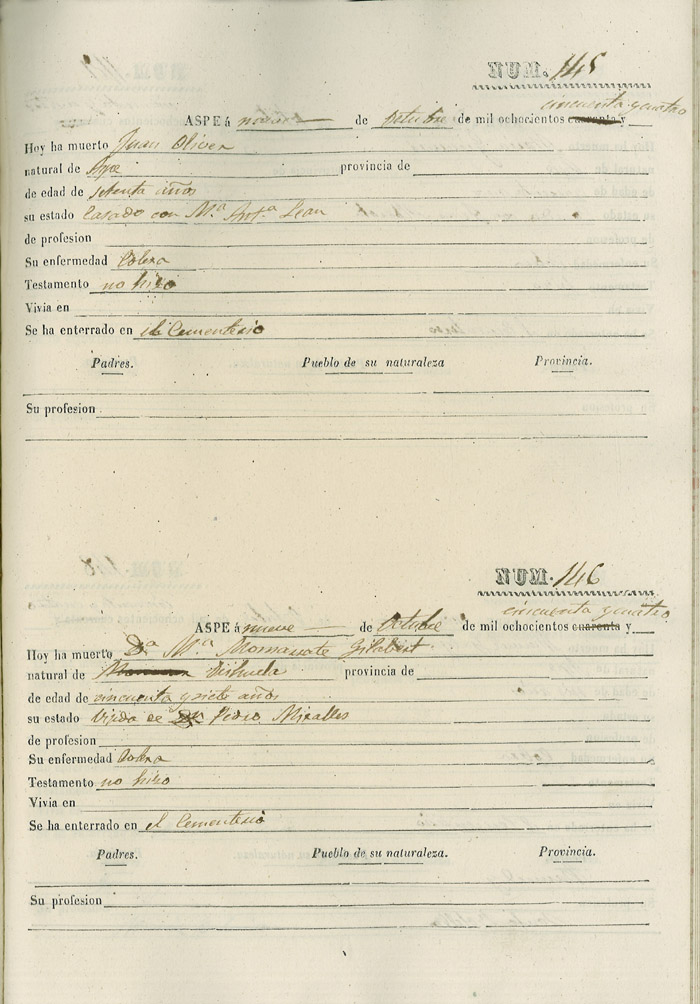 NUM. 145
cincuenta y cuatro
ASPE á nueve de Octubre de mil ochocientos cuarenta y
Hoy ha muerto Juan Oliver
natural de Aspe provincia de
de edad de setenta años
su estado Casado con M.ª Ant.ª Lean
de profesion
Su enfermedad Colera
Testamento no hizo
Vivia en
Se ha enterrado en el Cementerio
Padres. Pueblo de su naturaleza Provincia.
Su profesion
NUM. 146
cincuenta y cuatro
ASPE á nueve de Octubre de mil ochocientos cuarenta y
Hoy ha muerto D.ª M.ª Gilabert
natural de provincia de
de edad de cincuenta y siete años
su estado Viuda de Pedro Miralles
de profesion
Su enfermedad Colera
Testamento no hizo
Vivia en
Se ha enterrado en el Cementerio
Padres. Pueblo de su naturaleza. Provincia.
Su profesion